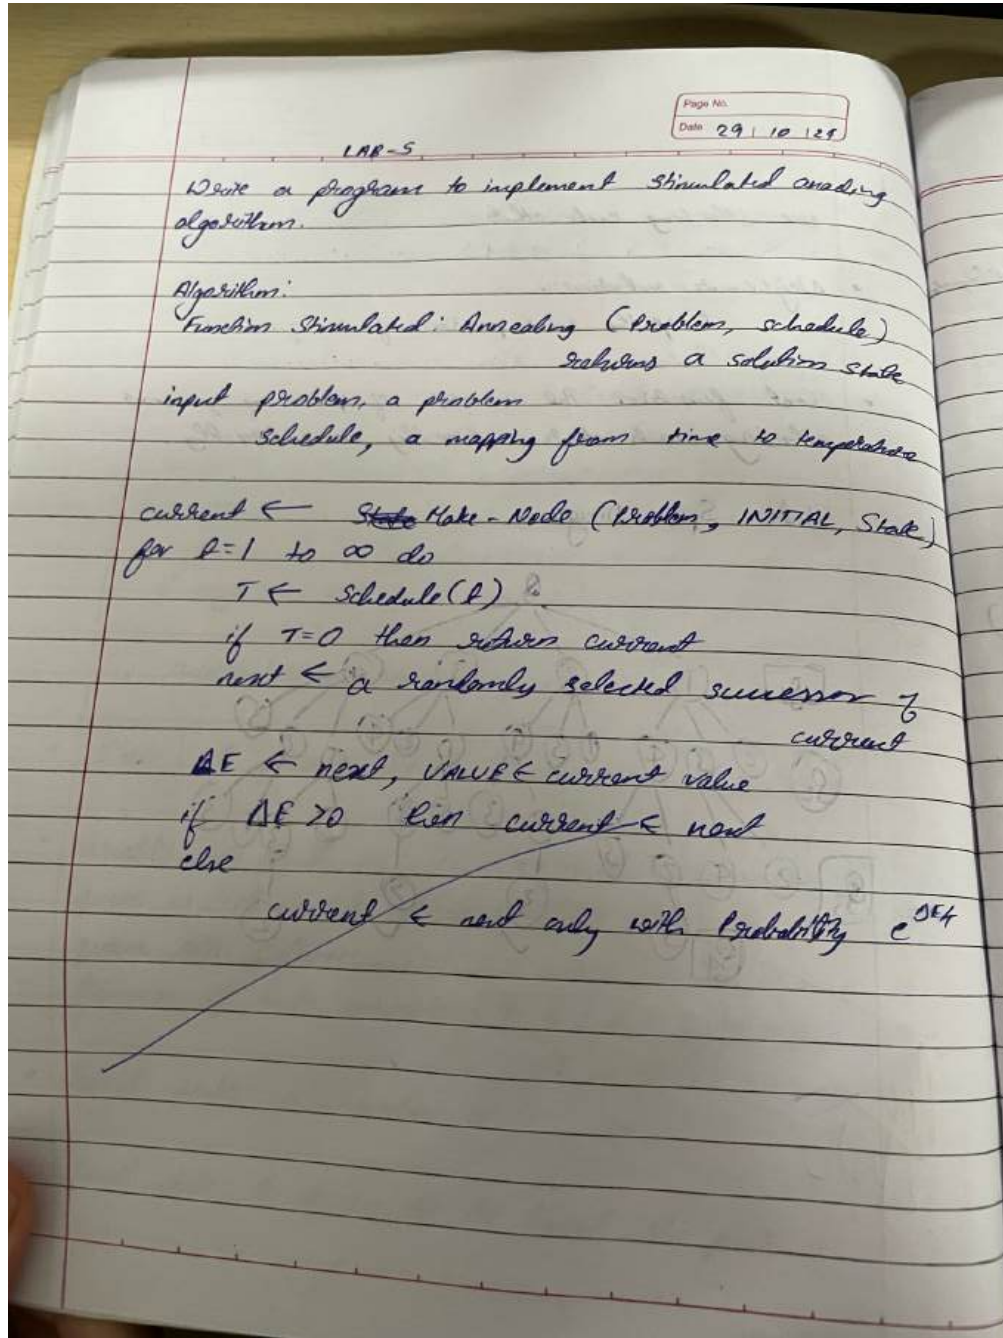 Page No.
Date 29 | 10 | 24
LAB-5
Write a program to implement Stimulated anading
algorithm.
Algorithm:
Function Stimulated: Annealing (Problem, schedule)
returns a solution state
input problem, a problem
schedule, a mapping from time to temperature
current ← Make-Node (Problem, INITIAL, State)
for t=1 to ∞ do
T ← schedule(t)
if T=0 then return current
next ← a randomly selected successor of
current
ΔE ← next, VALUE ← current value
if ΔE >0 then current ← next
else
current ← next only with Probability